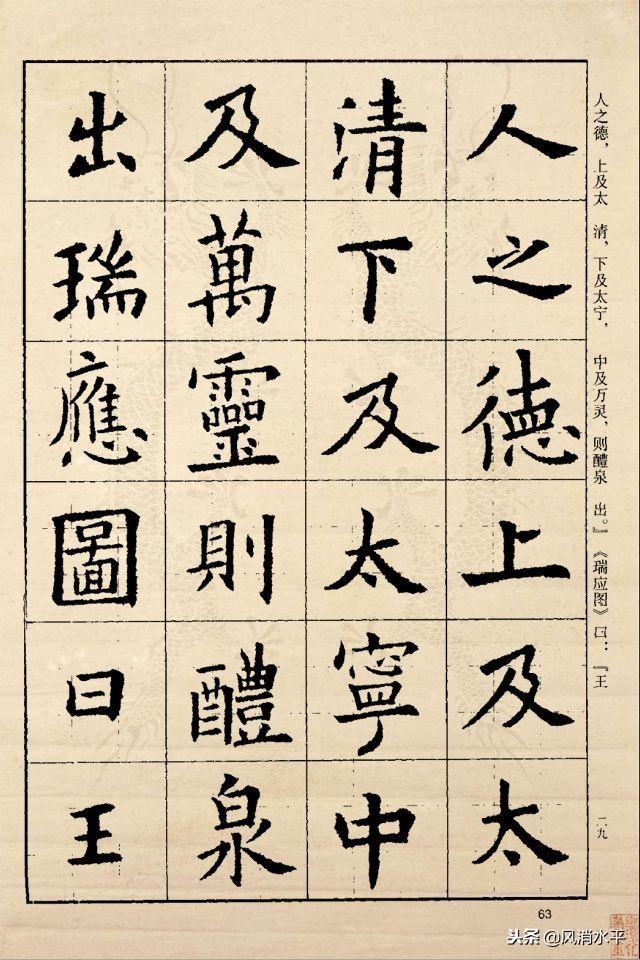 人之德上及太
清下及太寧中
及萬靈則醴泉
出瑞應圖曰王
人之德，上及太　清，下及太宁，　中及万灵，则醴泉　出。』《瑞应图》曰：『王
二九
63
头条 @风消水平